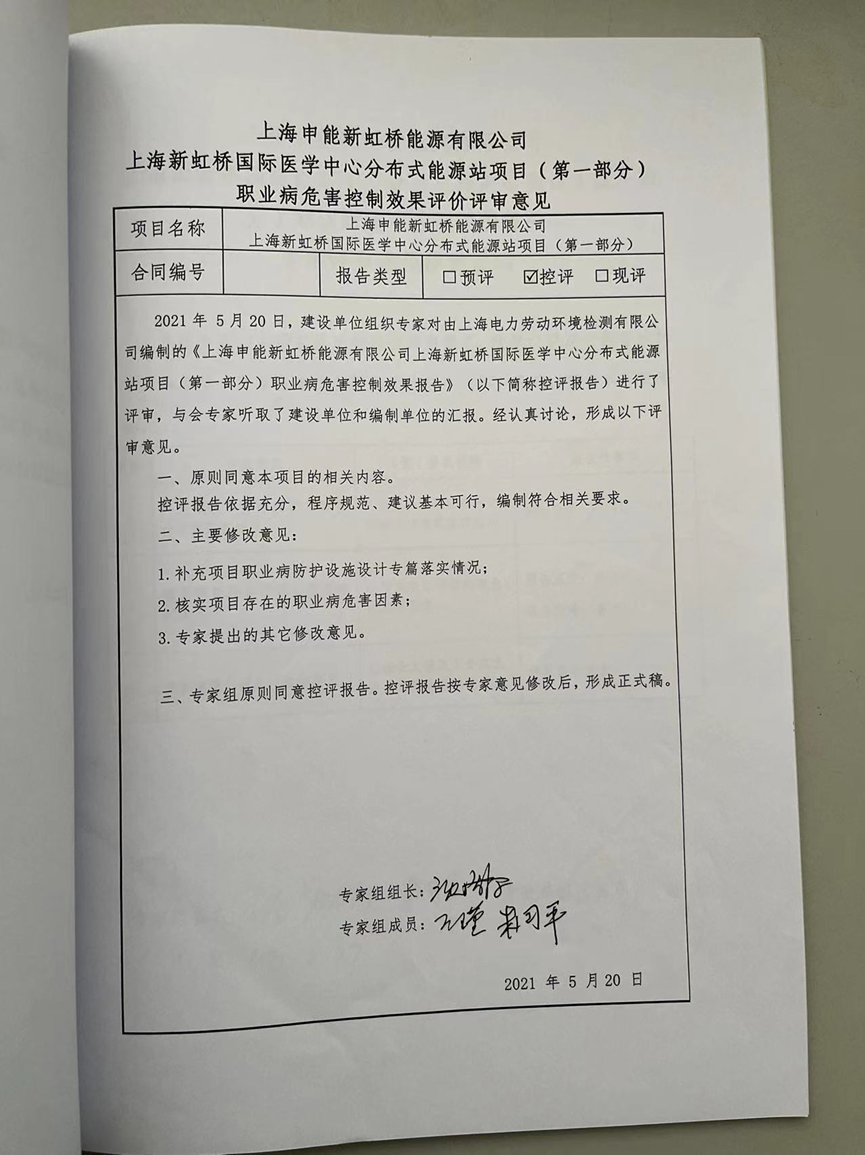 上海申能新虹桥能源有限公司
上海新虹桥国际医学中心分布式能源站项目（第一部分）
职业病危害控制效果评价评审意见
项目名称
上海申能新虹桥能源有限公司
上海新虹桥国际医学中心分布式能源站项目（第一部分）
合同编号 报告类型 ☐预评 ☑控评 ☐现评
2021 年 5 月 20 日，建设单位组织专家对由上海电力劳动环境检测有限公
司编制的《上海申能新虹桥能源有限公司上海新虹桥国际医学中心分布式能源
站项目（第一部分）职业病危害控制效果报告》（以下简称控评报告）进行了
评审，与会专家听取了建设单位和编制单位的汇报。经认真讨论，形成以下评
审意见。
一、原则同意本项目的相关内容。
控评报告依据充分，程序规范、建议基本可行，编制符合相关要求。
二、主要修改意见：
1.补充项目职业病防护设施设计专篇落实情况；
2.核实项目存在的职业病危害因素；
3.专家提出的其它修改意见。
三、专家组原则同意控评报告。控评报告按专家意见修改后，形成正式稿。
专家组组长：
专家组成员：
2021 年 5 月 20 日